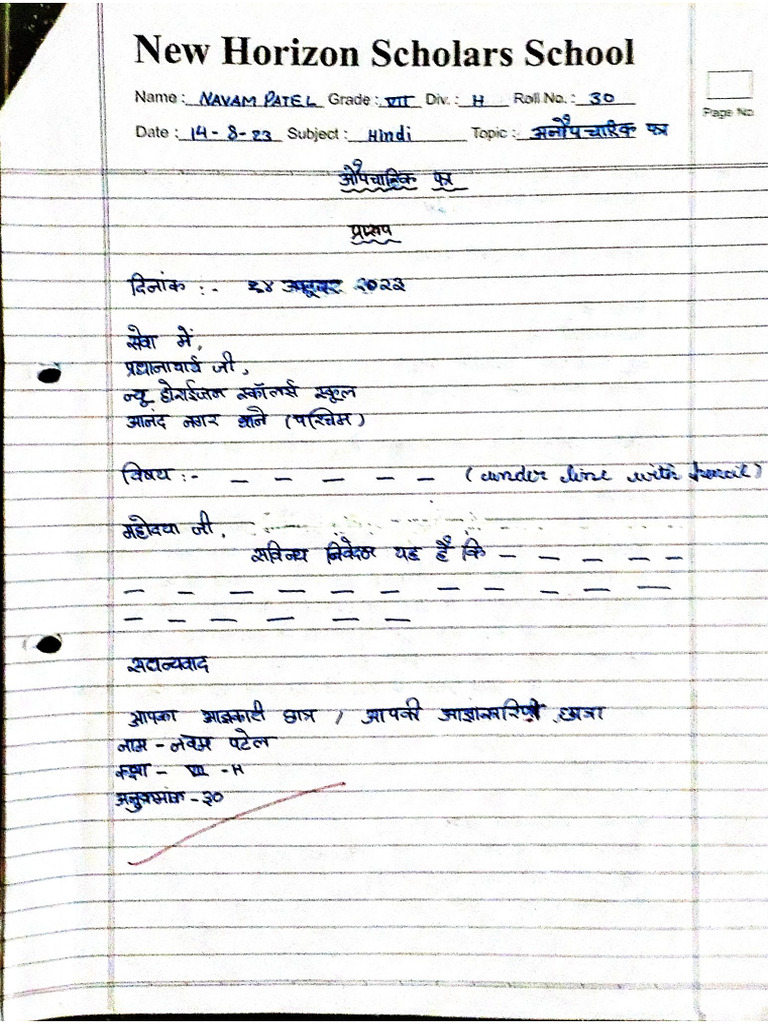 New Horizon Scholars School
Name : NAVAM PATEL Grade : VII Div. : H Roll No. : 30
Page No
Date : 14-8-23 Subject : Hindi Topic : अनौपचारिक पत्र
औपचारिक पत्र
प्रारूप
दिनांक :- २०२३
सेवा में,
प्रधानाचार्य जी,
न्यू होराईजन स्कॉलर्स स्कूल
आनंद नगर थाने (पश्चिम)
विषय :- – – – – – (under line with pencil)
महोदया जी,
सविनय निवेदन यह है कि – – – – –
– – – – – – – – – – – –
– – – – – –
सधन्यवाद
आपका आज्ञाकारी छात्र / आपकी छात्रा
नाम – नवम पटेल
कक्षा – VII - H
अनुक्रमांक - ३०